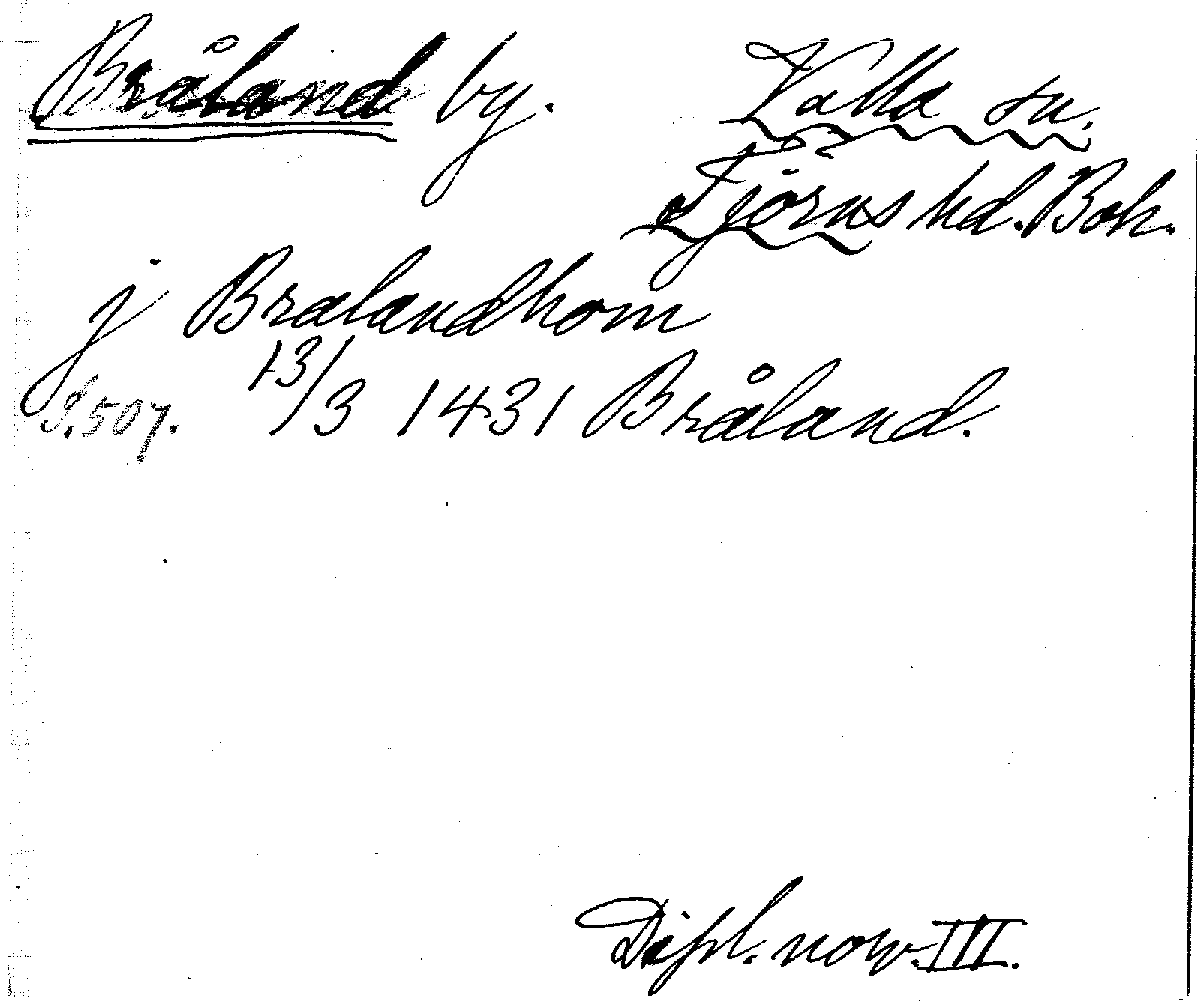 Bråland by. Valla sn.
Tjörns hd. Boh.
j Bralandhom
S. 507. 13/3 1431 Bråland.
Dipl. norv. III.